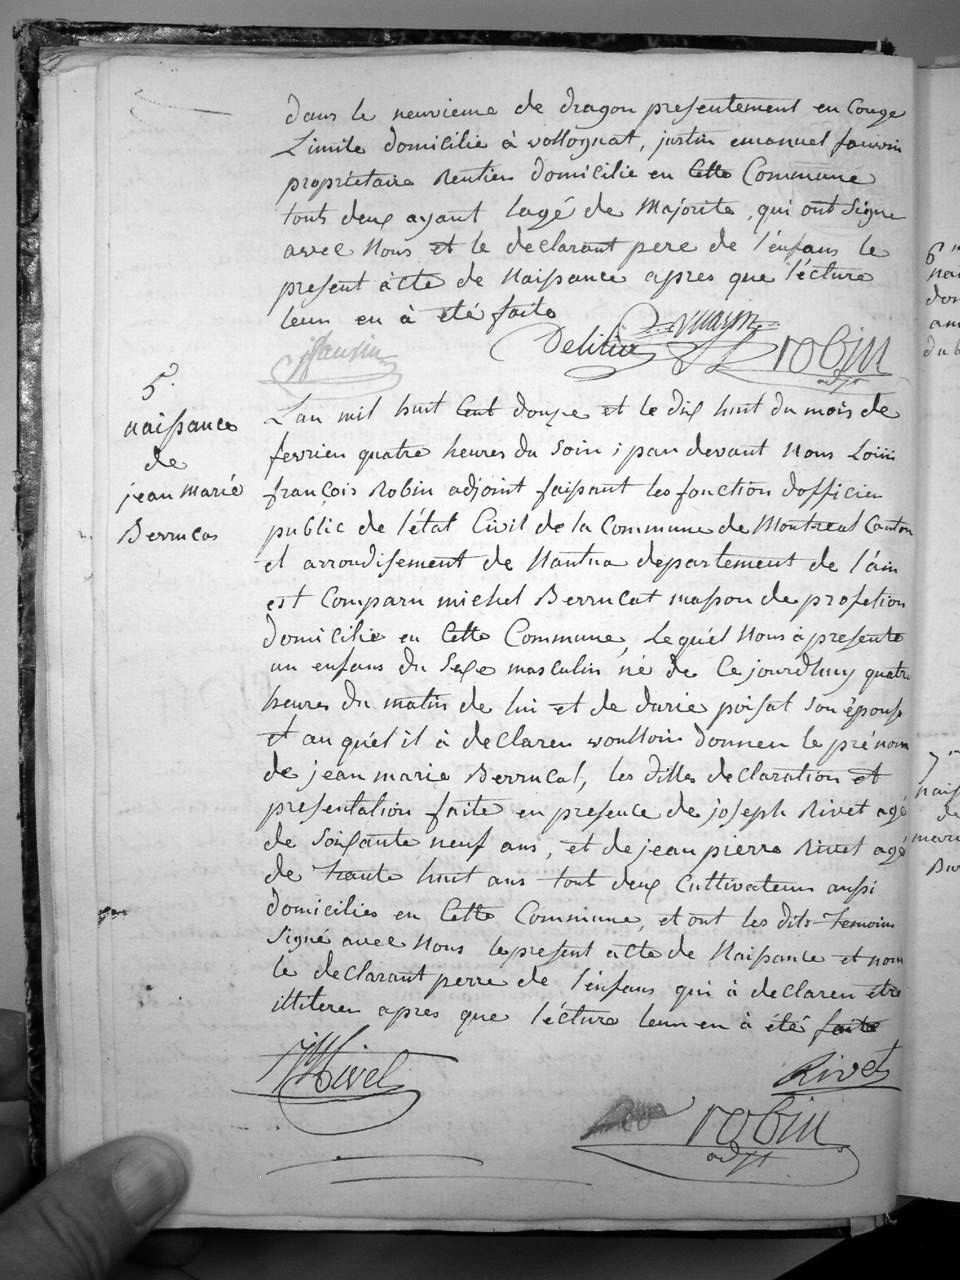 dans le neuvieme de dragon presentement en Conge
Limite domicilie à vollognat, justin emanuel
propriétaire Rentier domicilie en Cette Commune
tout deux ayant lagé de Majorite, qui ont Signe
avec Nous et le declarant pere de l'enfans le
present àcte de Naissance apres que l'écture
leur en à été faite
Delilia
robin
adjt
5.
naissance
de
jean marié
Berrucas
Lan mil huit Cent douze et le dix huit du mois de
fevrier quatre heures du Soir ; par devant Nous Louis
françois Robin adjoint faissant les fonction dofficier
public de l'état Civil de la Commune de Montreal Canton
et arrondissement de Nantua departement de l'ain
est Comparu michel Berrucat masson de profetion
domicilie en Cette Commune, Lequ'el Nous à presente
un enfans du Sexe masculin né de Cejourdhuy quatre
heures du matin de lui et de darie poisat Son épouse
et auqu'el il à declarer voulloir donner le prénom
de jean marie Berrucat, les dittes declaration et
presentation faite en presence de joseph Rivet agé
de Soixante neuf ans, et de jean pierre Rivet agé
de trante huit ans tout deux Cultivateur aussi
domicilies en Cette Commune, et ont les dits temoins
Signé avec Nous le present acte de Naissance et non
le declarant perre de l'enfans qui à declarer etre
illiterer apres que l'écture leur en à été faite
Rivet
Rivet
robin
adjt
6
nai
don
am
du b
7
naiss
de
mari